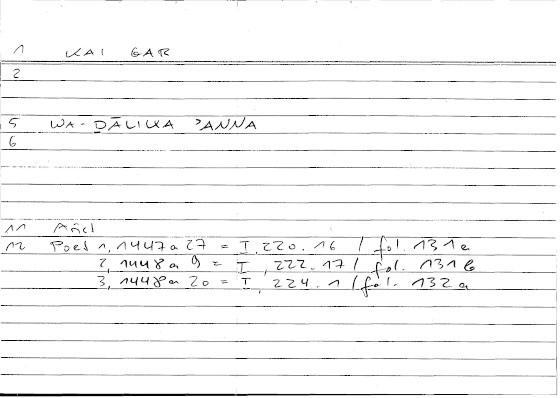 1 KAI GAR
2
5 WA-ḎĀLIKA ʾANNA
6
11 Añcl
12 Poet 1, 1447a 27 = I, 220.16 / fol. 131a
2, 1448a 9 = I, 222.17 / fol. 131b
3, 1448a 20 = I, 224.1 / fol. 132a